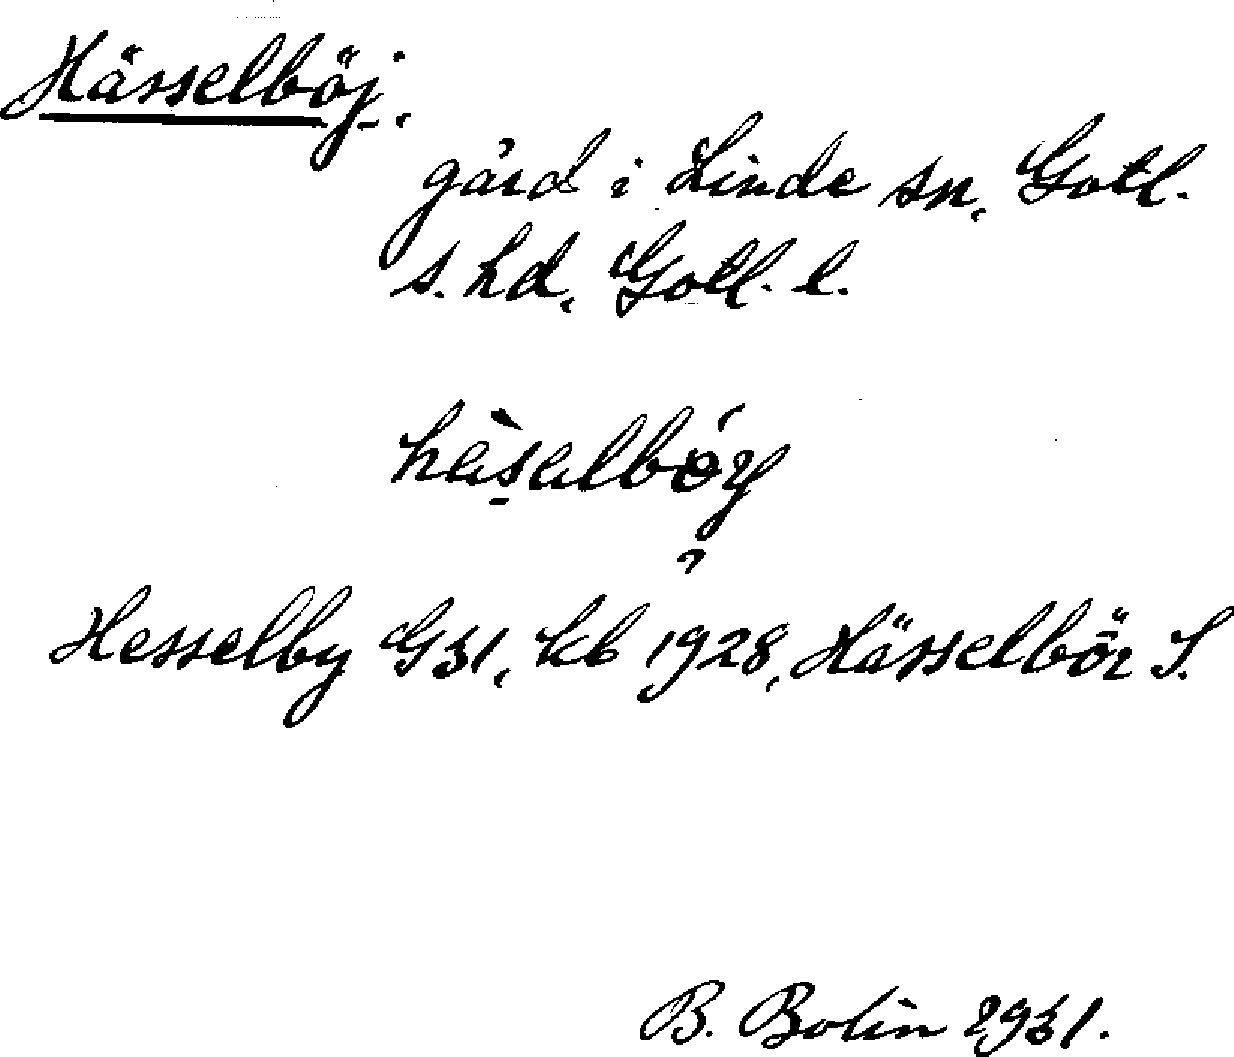 Hässelböj,
gård i Linde sn, Gotl.
s. hd, Gotl. l.
Hesselby G31, kb 1928, Hässelbör S.
B. Bolin 1931.